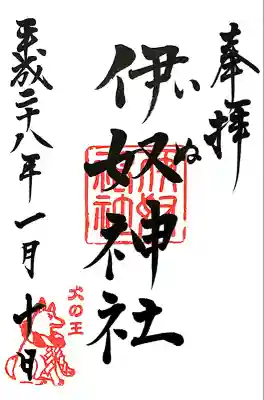 奉拝
伊奴神社
い
ぬ
平成二十八年一月十日
犬の王